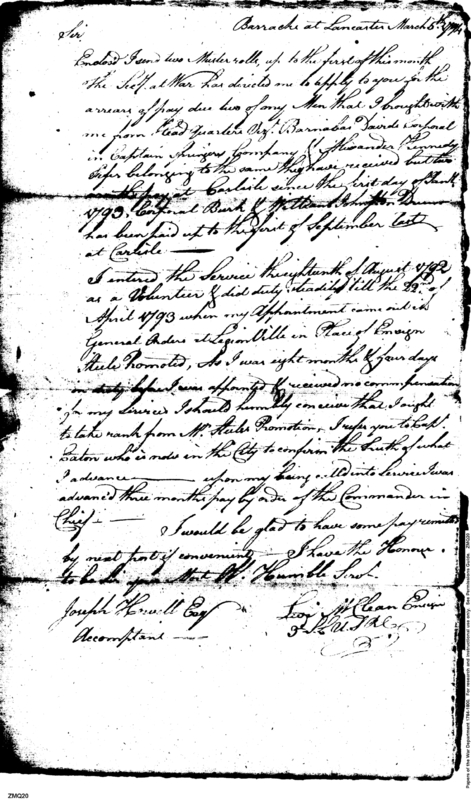 Barracks at Lancaster March 5th 1794
Sir
Enclosed I send two Muster rolls, up to the first of this month
The Secy at War has directed me to apply to you for the
arrears of pay due two of my Men that I brought with
me from Head Quarters Viz. Barnabas Davids Corporal
in Captain Company & Alexander Kennedy
belonging to the same they have received but two
pay at Carlisle since the first day of
1793. Corporal & William
has been paid up to the first of September last
at Carlisle
I entered the Service the eighteenth of August 1792
as a Volunteer & did duty steadily till the 22d of
April 1793 when my Appointment came out in
General Orders at Legionville in Place of Ensign
Steele Promoted, As I was eight months & four days
on duty before I was appointed & received no compensation
for my Service I should humbly conceive that I ought
to take rank from Mr. Steeles Promotion, I refer you to Capt.
Eaton who is now in the City to confirm the truth of what
I advance upon my being called into Service I was
advanced three months pay by order of the Commander in
Chief
I would be glad to have some pay remitted
by next post if convenient I have the Honour
to be Sir your Most Ob. Humble Servt.
Joseph Howell Esq
Accomptant
McClean Ensign
3
Papers of the War Department 1784-1800.
ZMQ20